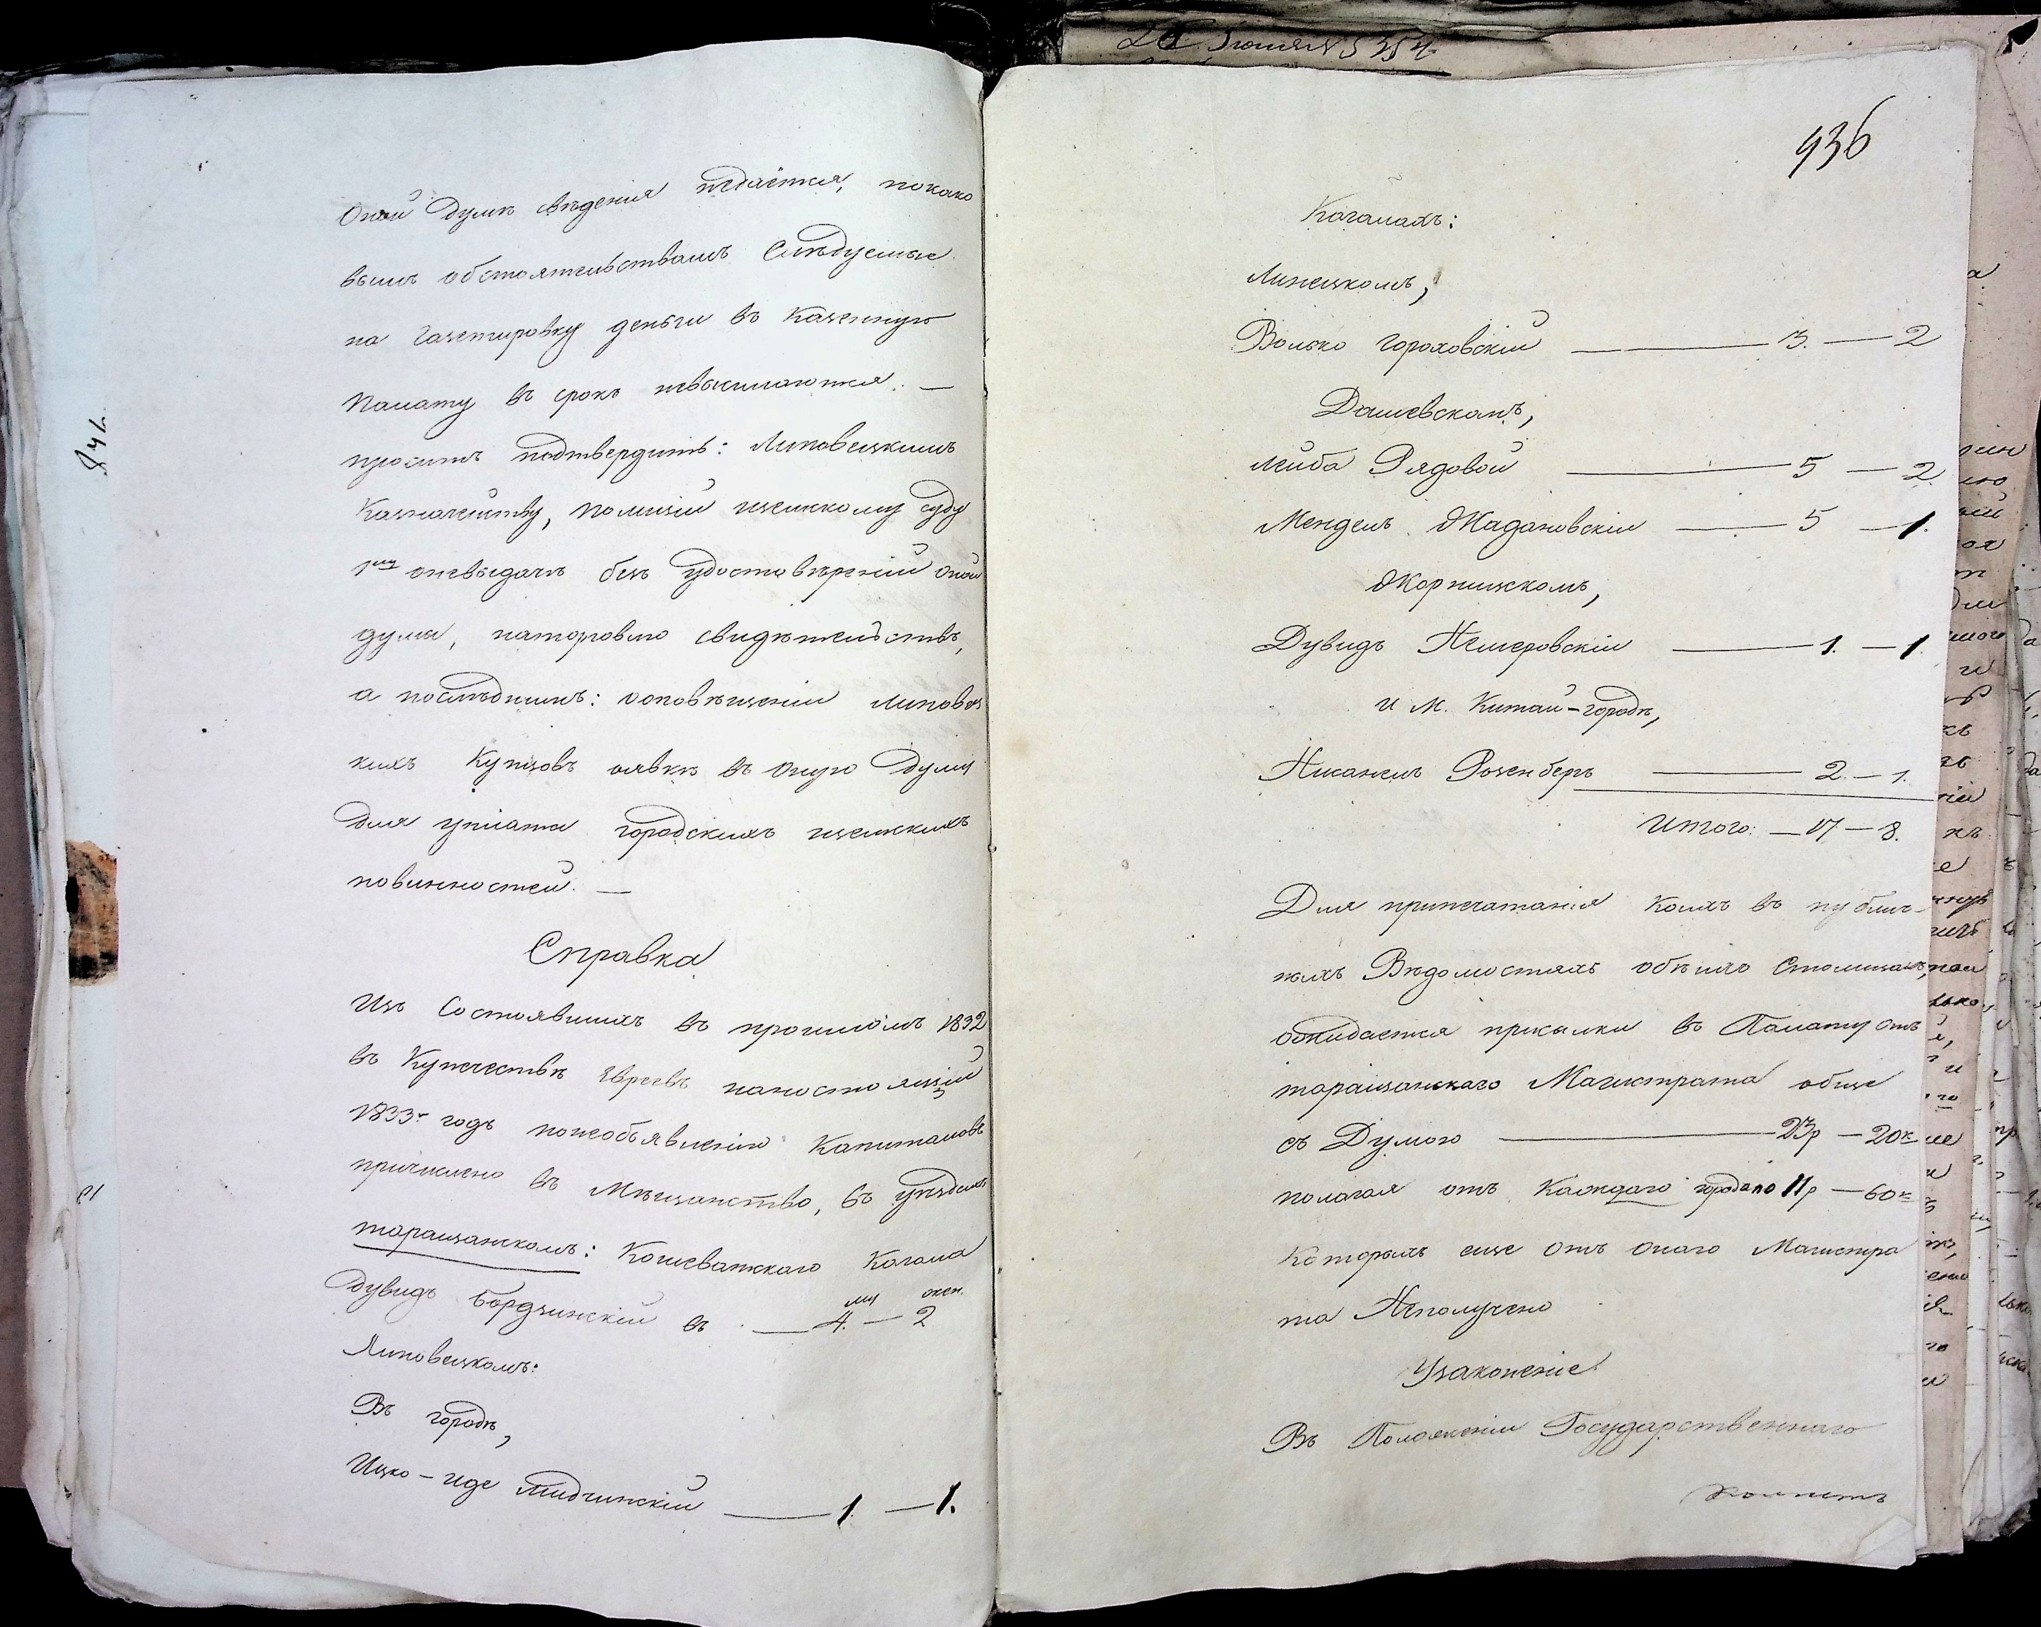 оной думѣ свѣденія недаётся, покако
вымъ обстоятельствамъ Слѣдуемые
на Газетировку деньги въ Казенную
Палату въ срокъ невысылаются. —
проситъ подтвердить: Липовецкимъ
Казначейству, полиціи иземскому суду
1му оневыдачѣ безъ удостовѣреній оной
думы, наторговлю свидѣтельствъ,
а послѣднимъ: ооповѣщеніи Липовец
кихъ Купцовъ оявкѣ въ оную думу
для уплаты городскихъ иземскихъ
повинностей. —
Справка
Изъ Состоявшихъ въ прошломъ 1832
въ Купечествѣ Евреевъ нанастоящій
1833й годъ понеобъявленію Капиталовъ
причислено въ Мѣщанство, въ уѣздахъ
таращанскомъ: Кошеватскаго Кагала
Дувидъ Бордзинскій въ — 4. — 2
му жен.
Липовецкомъ:
Въ городѣ,
Ицко-иде Мидчинскій — 1 — 1.
936
Кагалахъ:
Линецкомъ,
Волько Гороховскій — 3. — 2
Дашевскомъ,
Лейба Рядовой — 5 — 2
Мендель Жадановскій — 5 — 1.
Жорнискомъ,
Дувидъ Немеровскій — 1. — 1
и м. Китай-городѣ,
Нисанель Розенберъ — 2 — 1.
Итого: — 17 — 8.
Для припечатанія коихъ въ публич-
ныхъ Вѣдомостяхъ обѣихъ Столицахъ,
ожидается присылки въ Палату отъ
таращанскаго Магистрата обще
съ Думою — 23р — 20к
полагая отъ Каждаго города по 11р — 60к
Которыхъ еще отъ онаго Магистра
та Неполучено
Узаконеніе
Въ Положеніи Государственнаго